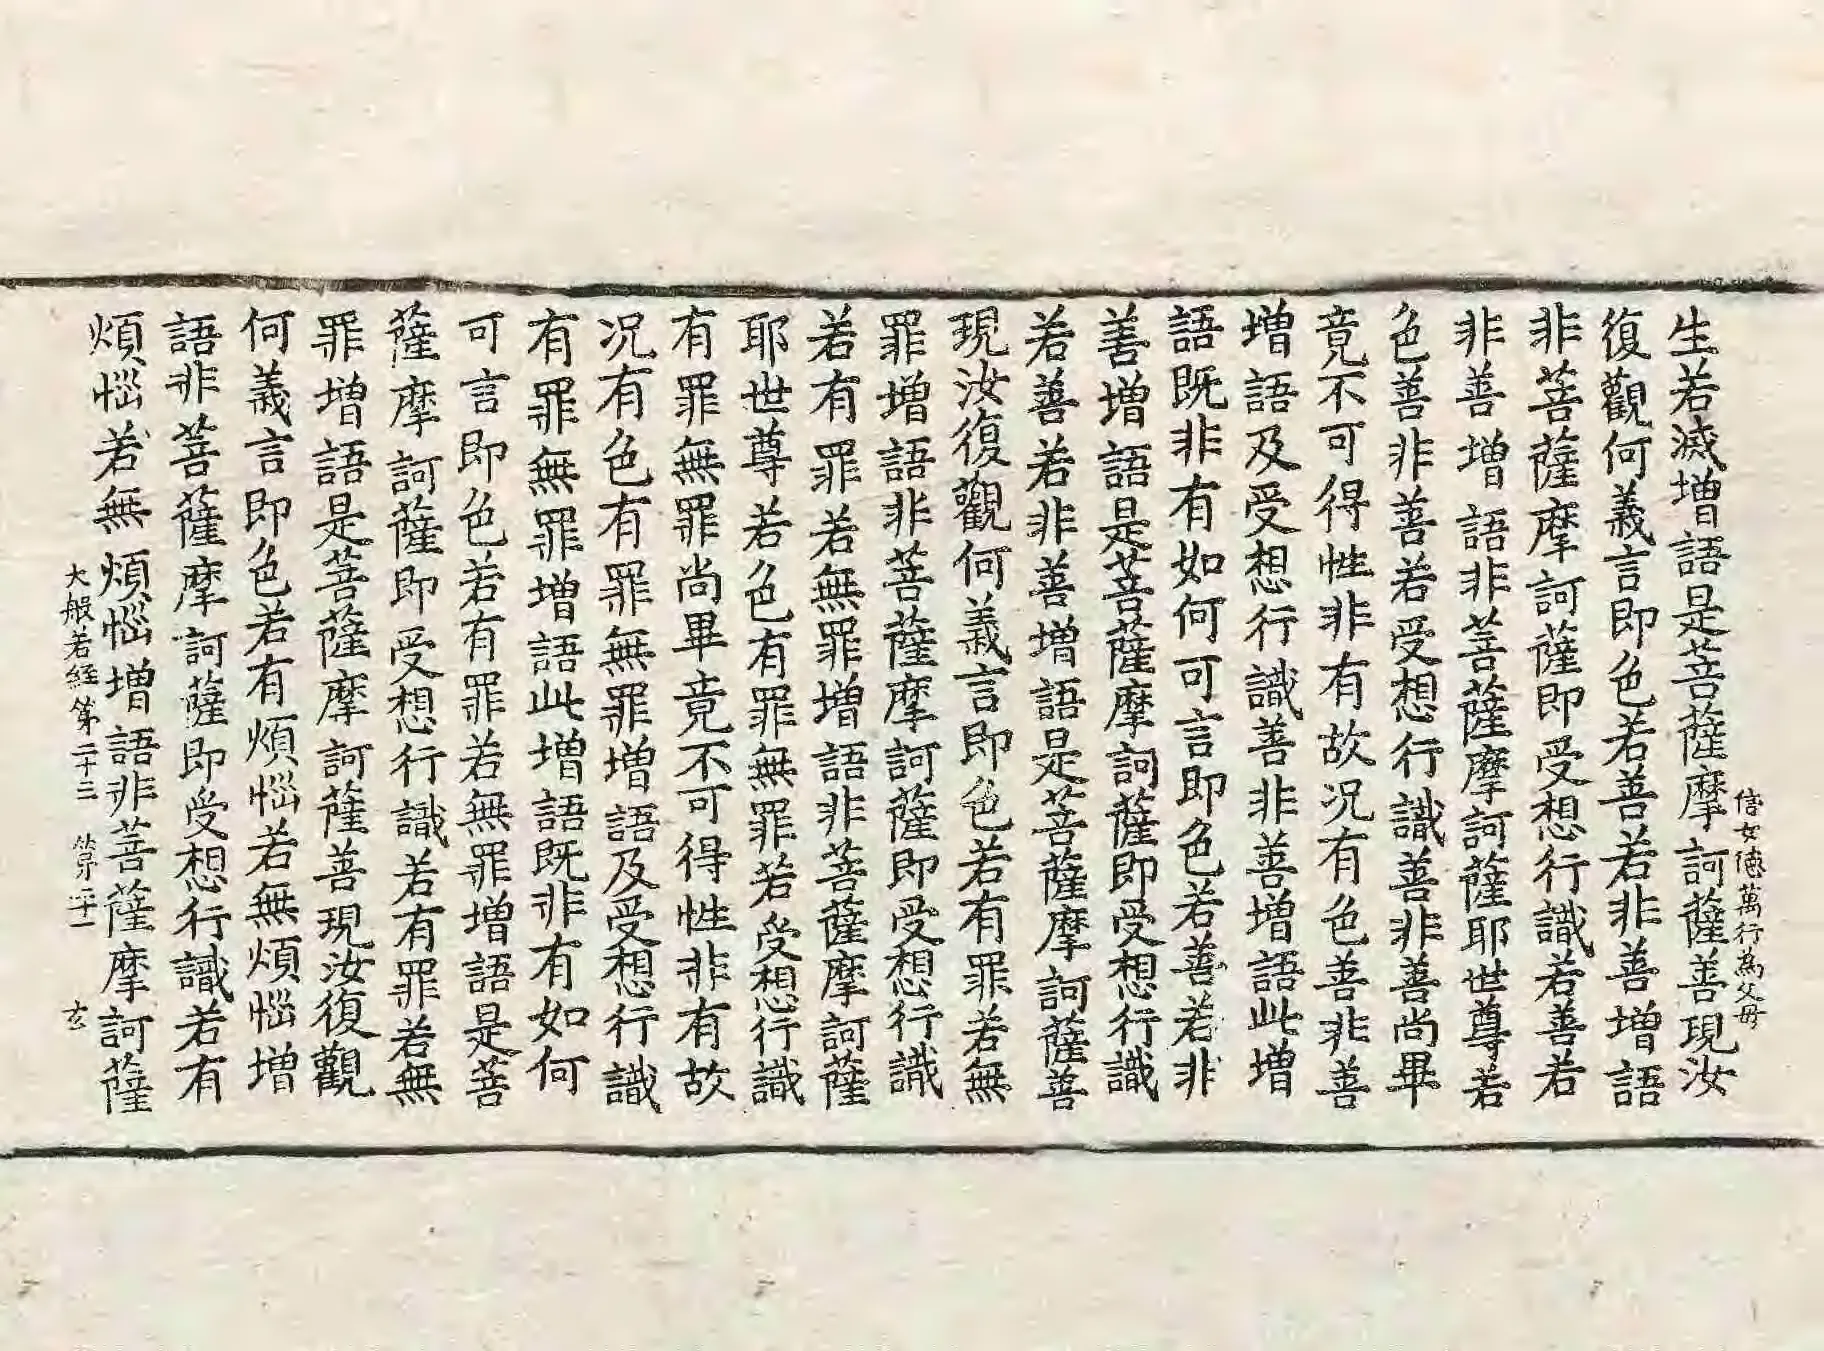 信女德萬行爲父母
生若滅增語是菩薩摩訶薩善現汝
復觀何義言即色若善若非善增語
非菩薩摩訶薩即受想行識若善若
非善增語非菩薩摩訶薩耶世尊若
色善非善若受想行識善非善尚畢
竟不可得性非有故况有色善非善
增語及受想行識善非善增語此增
語既非有如何可言即色若善若非
善增語是菩薩摩訶薩即受想行識
若善若非善增語是菩薩摩訶薩善
現汝復觀何義言即色若有罪若無
罪增語非菩薩摩訶薩即受想行識
若有罪若無罪增語非菩薩摩訶薩
耶世尊若色有罪無罪若受想行識
有罪無罪尚畢竟不可得性非有故
况有色有罪無罪增語及受想行識
有罪無罪增語此增語既非有如何
可言即色若有罪若無罪增語是菩
薩摩訶薩即受想行識若有罪若無
罪增語是菩薩摩訶薩善現汝復觀
何義言即色若有煩惱若無煩惱增
語非菩薩摩訶薩即受想行識若有
煩惱若無煩惱增語非菩薩摩訶薩
大般若經第二十三 第二十一 玄